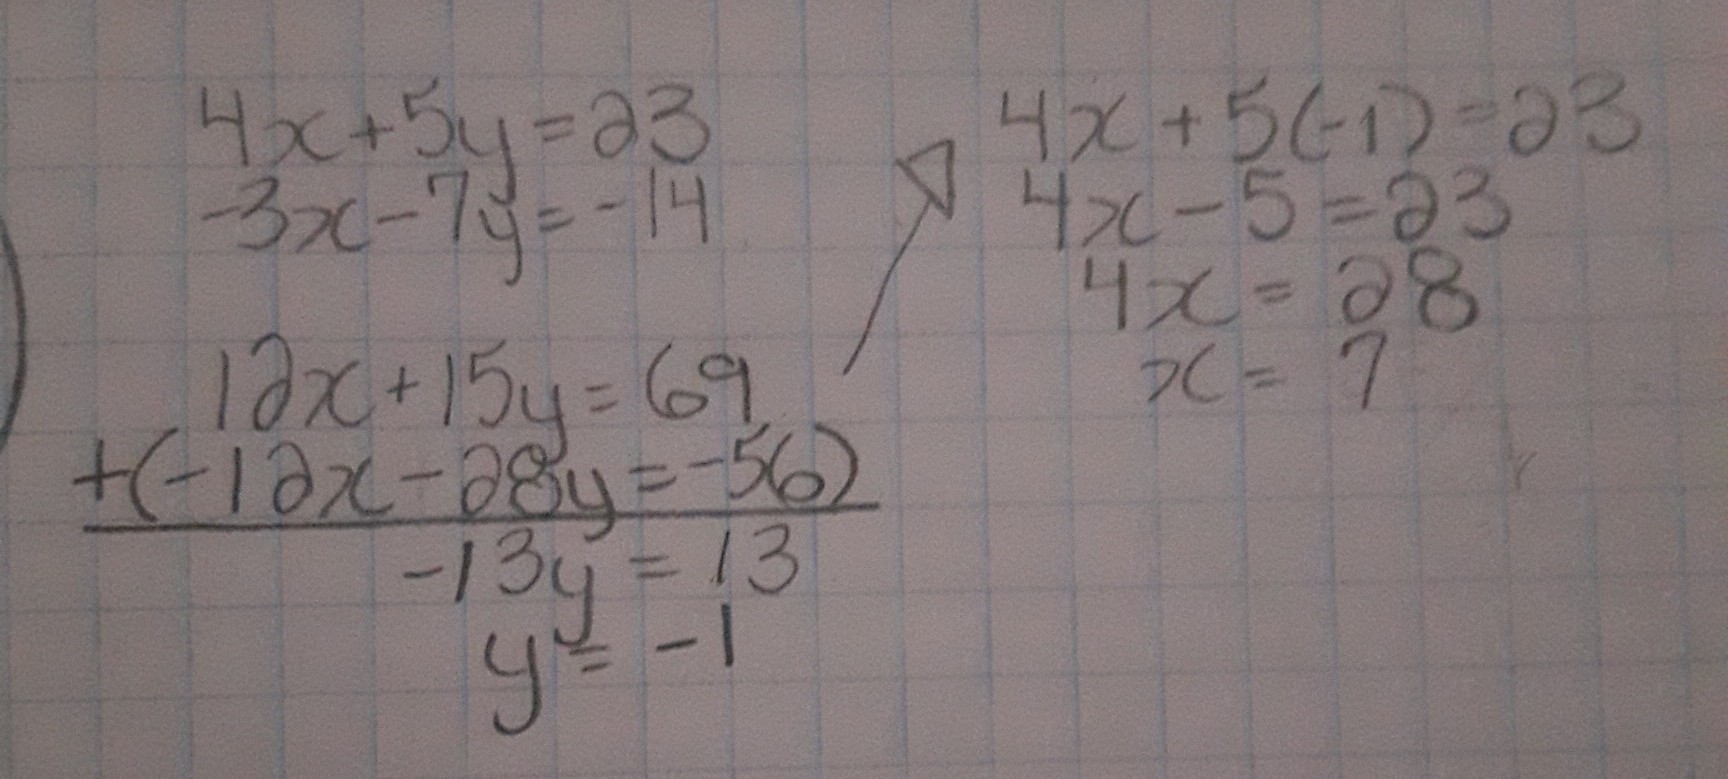 4x+5y=23
-3x-7y=-14
12x+15y=69
+(-12x-28y=-56)
-13y=13
y=-1
4x+5(-1)=23
4x-5=23
4x=28
x=7